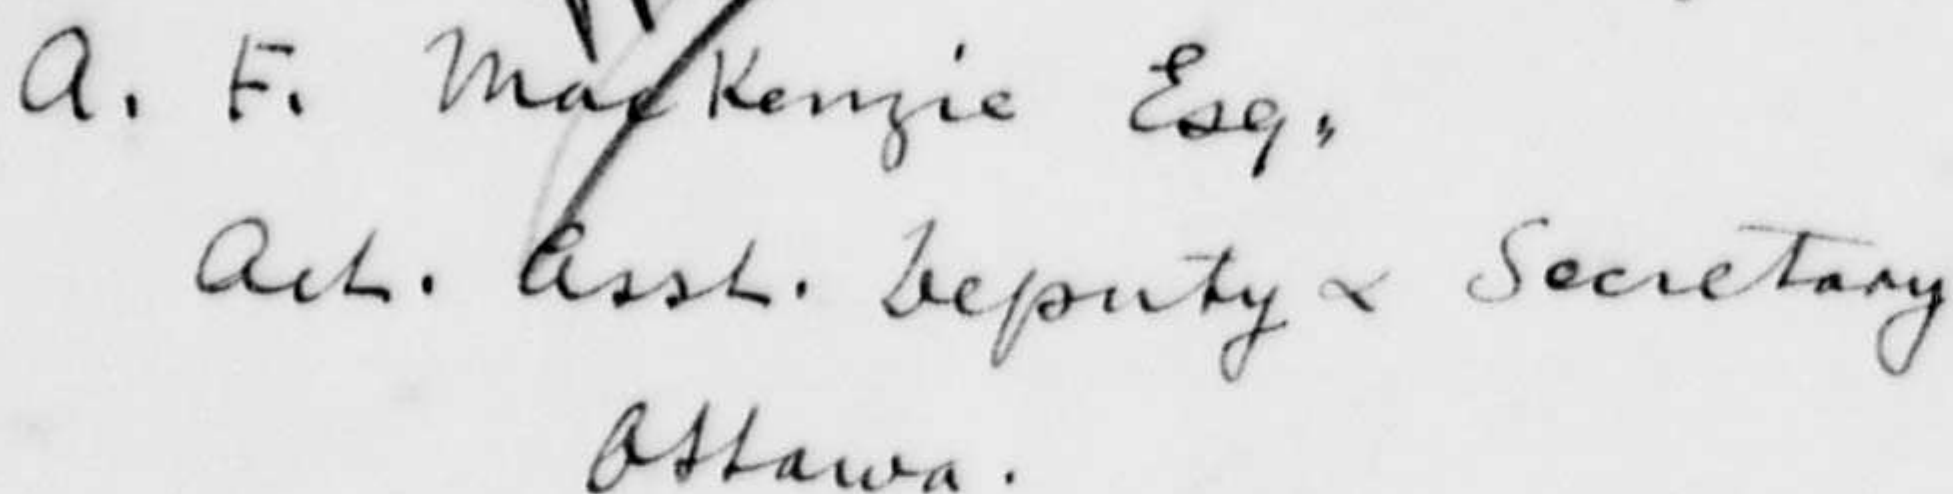 A. F. MacKenzie Esq.,
Act. Asst. Deputy & Secretary
Ottawa.